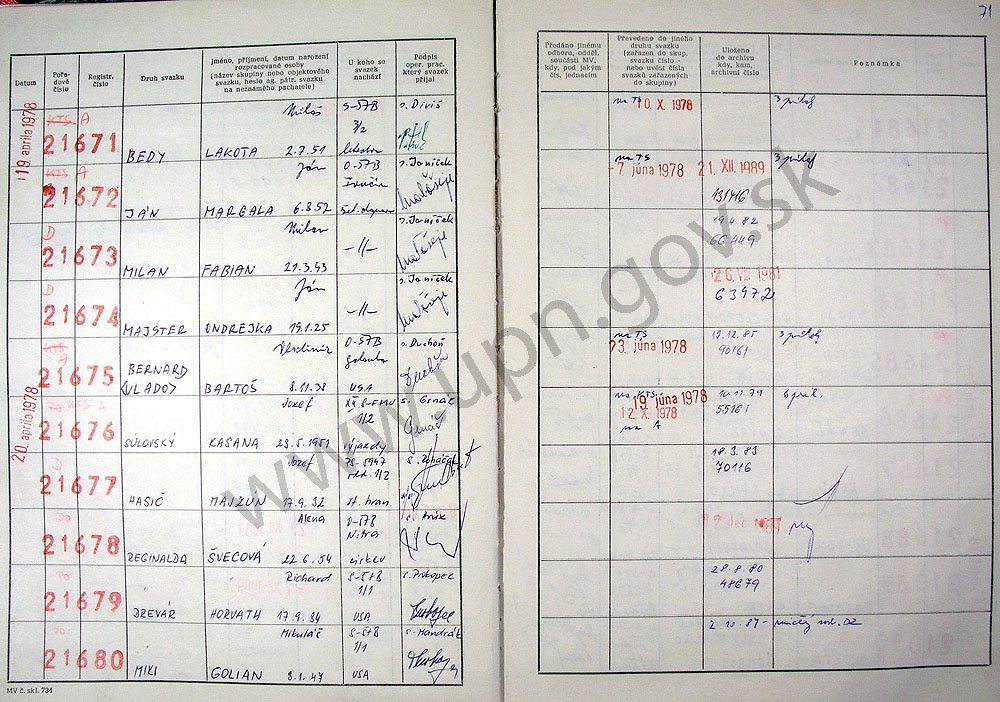 71
Datum
Pořa-
dové
číslo
Registr.
číslo
Druh svazku
Jméno, příjmení, datum narození
rozpracované osoby
(název skupiny nebo objektového
svazku, heslo ag. pátr. svazku
na neznámého pachatele)
U koho se
svazek
nachází
Podpis
oper. prac.
který svazek
přijal
Předáno jinému
odboru, odděl.
součásti MV,
kdy, pod jakým
čís. jednacím
Převedeno do jiného
druhu svazku
(zařazen do skup.
svazku číslo -
nebo uvést čísla
svazků zařazených
do skupiny)
Uloženo
do archivu
kdy, kam,
archivní číslo
Poznámka
19. apríla 1978
KTS A
21671
BEDY
LAKOTA
Miloš
2.7.51
S-ŠTB
3/2
s. Diviš
na TS
10 X. 1978
3 príloh
KTS A
21672
JÁN
MARGALA
Ján
6.8.52
O-ŠTB
s. Janíček
na TS
-7 júna 1978
21. XII. 1989
3 príloh
D
21673
MILAN
FABIAN
Milan
21.3.43
-//-
s. Janíček
19.4.82
66449
D
21674
MAJSTER
ONDREJKA
Ján
19.1.25
-//-
s. Janíček
26. VIII. 1981
63972
KTS
A
21675
BERNARD
VLADOV
BARTOŠ
Vladimír
8.11.38
O-ŠTB
Galanta
USA
s. Duchoň
na TS
23. júna 1978
90161
3 príloh
20. apríla 1978
KTS A
21676
SÚĽOVSKÝ
KAŠANA
Jozef
23.5.1951
1/2
výjazdy
s. Grnáč
na KTS
19 júna 1978
12 X. 1978
na A
10.11.79
55161
6 príl.
D
21677
HASIČ
MAJZUN
Jozef
17.9.32
1/2
18.3.83
70116
DO
21678
REGINALDA
ŠVECOVÁ
Alena
22.6.54
O-ŠTB
Nitra
cirkev
DO
21679
DREVÁR
HORVATH
Richard
17.9.34
S-ŠTB
1/1
USA
s. Prokopec
28.8.80
48679
DO
21680
MIKI
GOLIAN
Mikuláš
8.1.47
S-ŠTB
1/1
USA
s. Mandrák
MV č. skl. 734
www.upn.gov.sk